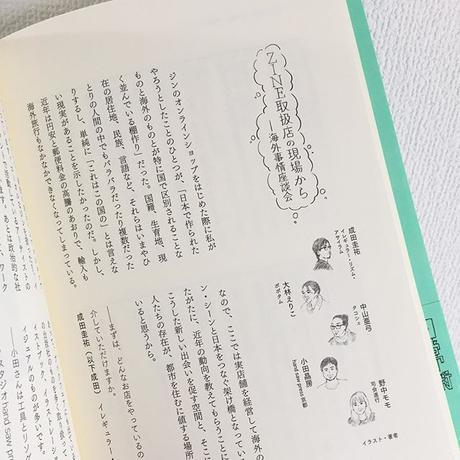 ZINE取扱店の現場から
―海外事情座談会
成田圭祐
イレギュラー・リズム・
アサイラム
中山亜弓
タコシェ
大林えりこ
ポポタム
小田晶房
hand saw press京都
野中モモ
司会進行
イラスト・著者
ジンのオンラインショップをはじめた際に私が
やろうとしたことのひとつが、「日本で作られた
ものと海外のものとが特に国で区別されることな
く並んでいる棚作り」だった。国籍、生育地、現
在の居住地、民族、言語など、それらはいまやひ
とりの人間の中でもバラバラだったり複数だった
りするし、単純に「これはこの国の」とは言えな
い現実があることを示したかったのだ。しかし、
近年は円安と郵便料金の高騰のあおりで、輸入も
海外旅行もなかなかできなくなってしまっている。
なので、ここでは実店舗を経営して海外の
ン・シーンと日本をつなぐ架け橋となってい
たがたに、近年の動向を教えてもらうととも
こうした新しい出会いを促す空間と、そこに
人たちの存在が、都市を住むに値する場所
いると思うから。
――まずは、どんなお店をやっているの
介していただけますか。
成田圭祐（以下成田） イレギュラー・